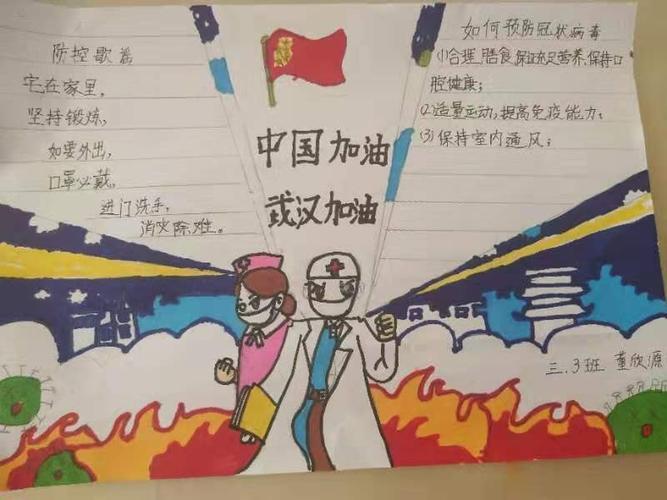 防控歌谣
宅在家里,
坚持锻炼,
如要外出,
口罩必戴,
进门洗手,
消灾除难。
中国加油
武汉加油
如何预防冠状病毒
(1)合理膳食,保证充足营养,保持口
腔健康;
(2)适量运动,提高免疫能力;
(3)保持室内通风;
三.3班 董欣源